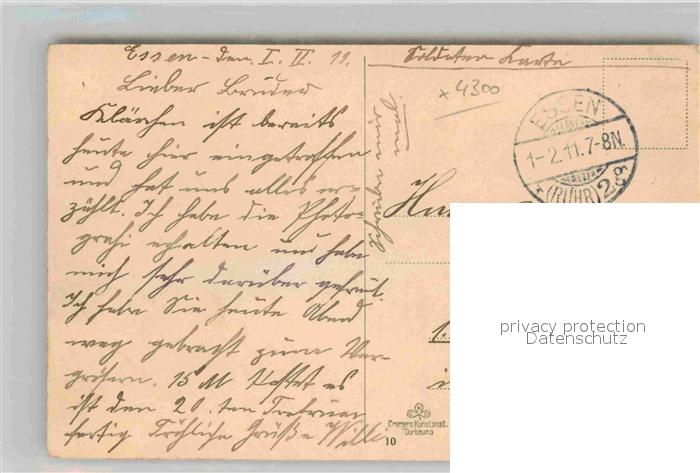 Essen - den I. II. 11.
Lieber Bruder
Klärchen ist bereits
heute hier eingetroffen
und hat uns alles er-
zählt. Ich habe die Photo-
grafi erhalten und habe
mich sehr darüber gefreut.
Ich habe Sie heute Abend
weg gebracht zum Ver-
grösern. 15 M kostet es
ist den 20. ten Februar
fertig Fröhliche Grüße Willi
Schreibe mir
mal.
Soldaten Karte
x 4300
ESSEN
1-2.11.7-8N.
* (RUHR) 2g
privacy protection
Datenschutz
Cramers Kunstanst.
Dortmund
10